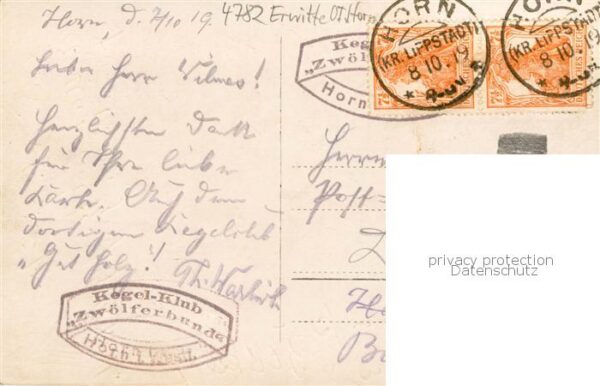 Horn, d. 7/10 19. 4782 Erwitte OT. Horn
Lieber Herr Vilmes!
Herzlichsten Dank
für Ihre liebe
Karte. Auf dem
dortigen Kegelklub
„Gut Holz!"
Kegel-Klub
„Zwölferbund“
Horn i. Westf.
Ke
„Zwölfer
Horn
HORN
(KR. LIPPSTADT)
8 10. 19
HORN
(KR. LIPPSTADT)
8 10. 19
7½
7½
Herrn
Post-
privacy protection
Datenschutz